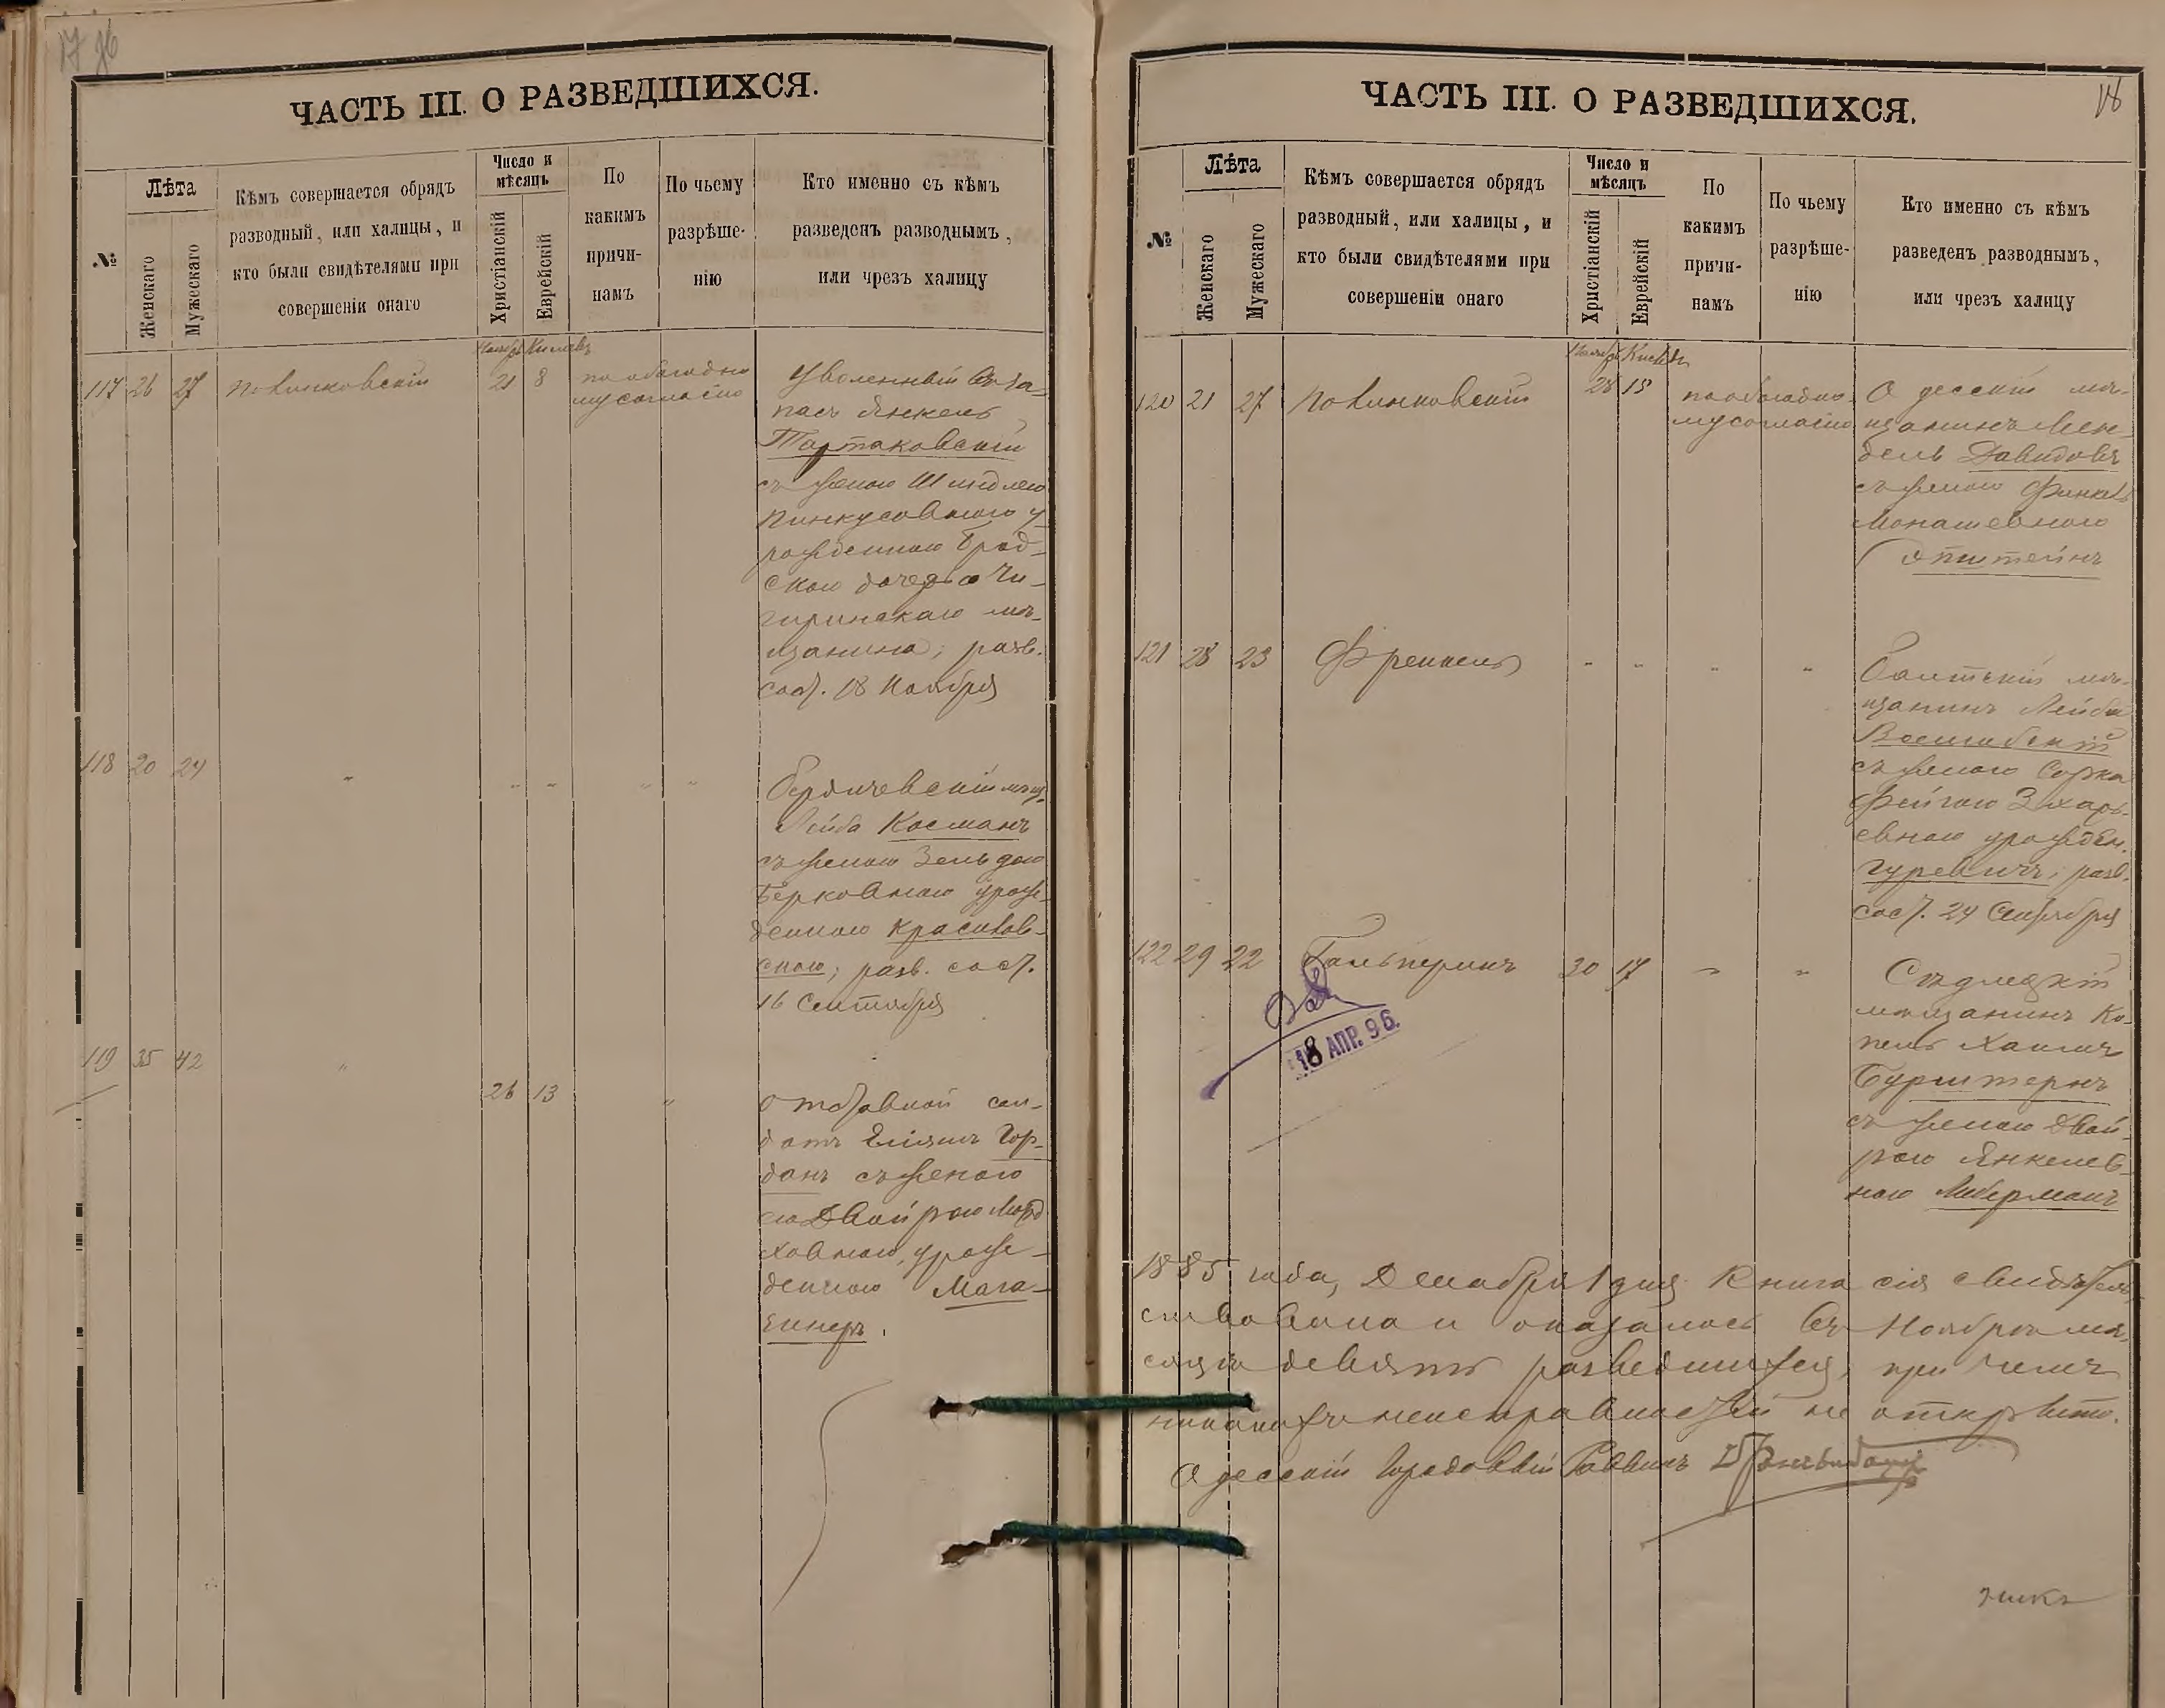 ЧАСТЬ III. О РАЗВЕДШИХСЯ.
№
Лѣта
Женскаго
Мужескаго
Кѣмъ совершается обрядъ
разводный, или халицы, и
кто были свидѣтелями при
совершеніи онаго
Число и
мѣсяцъ
Христіанскій
Еврейскій
По
какимъ
причи-
намъ
По чьему
разрѣше-
нію
Кто именно съ кѣмъ
разведенъ разводнымъ,
или чрезъ халицу
Ноябрь Кислевъ
117 26 27 Полинковскій 21 8 по обоюдно
му согласію
Уволенный въ за-
пасъ Янкель
Тартаковскій
съ женою Шейндлею
Пинкусовною у-
рожденною Брод-
скою дочерью Чи-
гиринскаго мѣ-
щанина; разв.
сост. 18 Ноября
118 20 24 " " " " "
Бердичевскій мѣщ.
Лейба Косманъ
съ женою Зельдою
Берковною урож-
денною Красилов-
скою; разв. сост.
16 Сентября
119 35 42 " 26 13 "
Отставной сол-
датъ Гор-
данъ съ женою
его Двойрою Морд
ховною, урож-
денною Мага-
Ейнеръ.
ЧАСТЬ III. О РАЗВЕДШИХСЯ.
18
№
Лѣта
Женскаго
Мужескаго
Кѣмъ совершается обрядъ
разводный, или халицы, и
кто были свидѣтелями при
совершеніи онаго
Число и
мѣсяцъ
Христіанскій
Еврейскій
По
какимъ
причи-
намъ
По чьему
разрѣше-
нію
Кто именно съ кѣмъ
разведенъ разводнымъ,
или чрезъ халицу
Ноябрь Кислевъ
120 21 27 Полинковскій 28 15 по обоюдно-
му согласію
Одесскій мѣ-
щанинъ Мен-
дель Давидовъ
съ женою Финкель
Монашевною
Эпштейнъ
121 28 23 Френкель " " " "
Балтскій мѣ-
щанинъ Лейба
съ женою Сурка
Фейгою Захарь-
евною урожден.
Гуревичъ; разв.
сост. 24 Сентября
122 29 22 Гальперинъ 30 17 " "
мѣщанинъ Ко-
пель Хаимъ
Бурштернъ
съ женою Двой-
рою Янкелев-
ною Либерманъ
18 АПР. 96.
1885 года, Декабря 1 дня Книга сія свидѣтель-
ствована и оказалось въ Ноябрѣ мѣ-
сяцѣ девять разведшихся, при чемъ
никакихъ неисправностей не открыто.
Одесскій Городовый Раввинъ